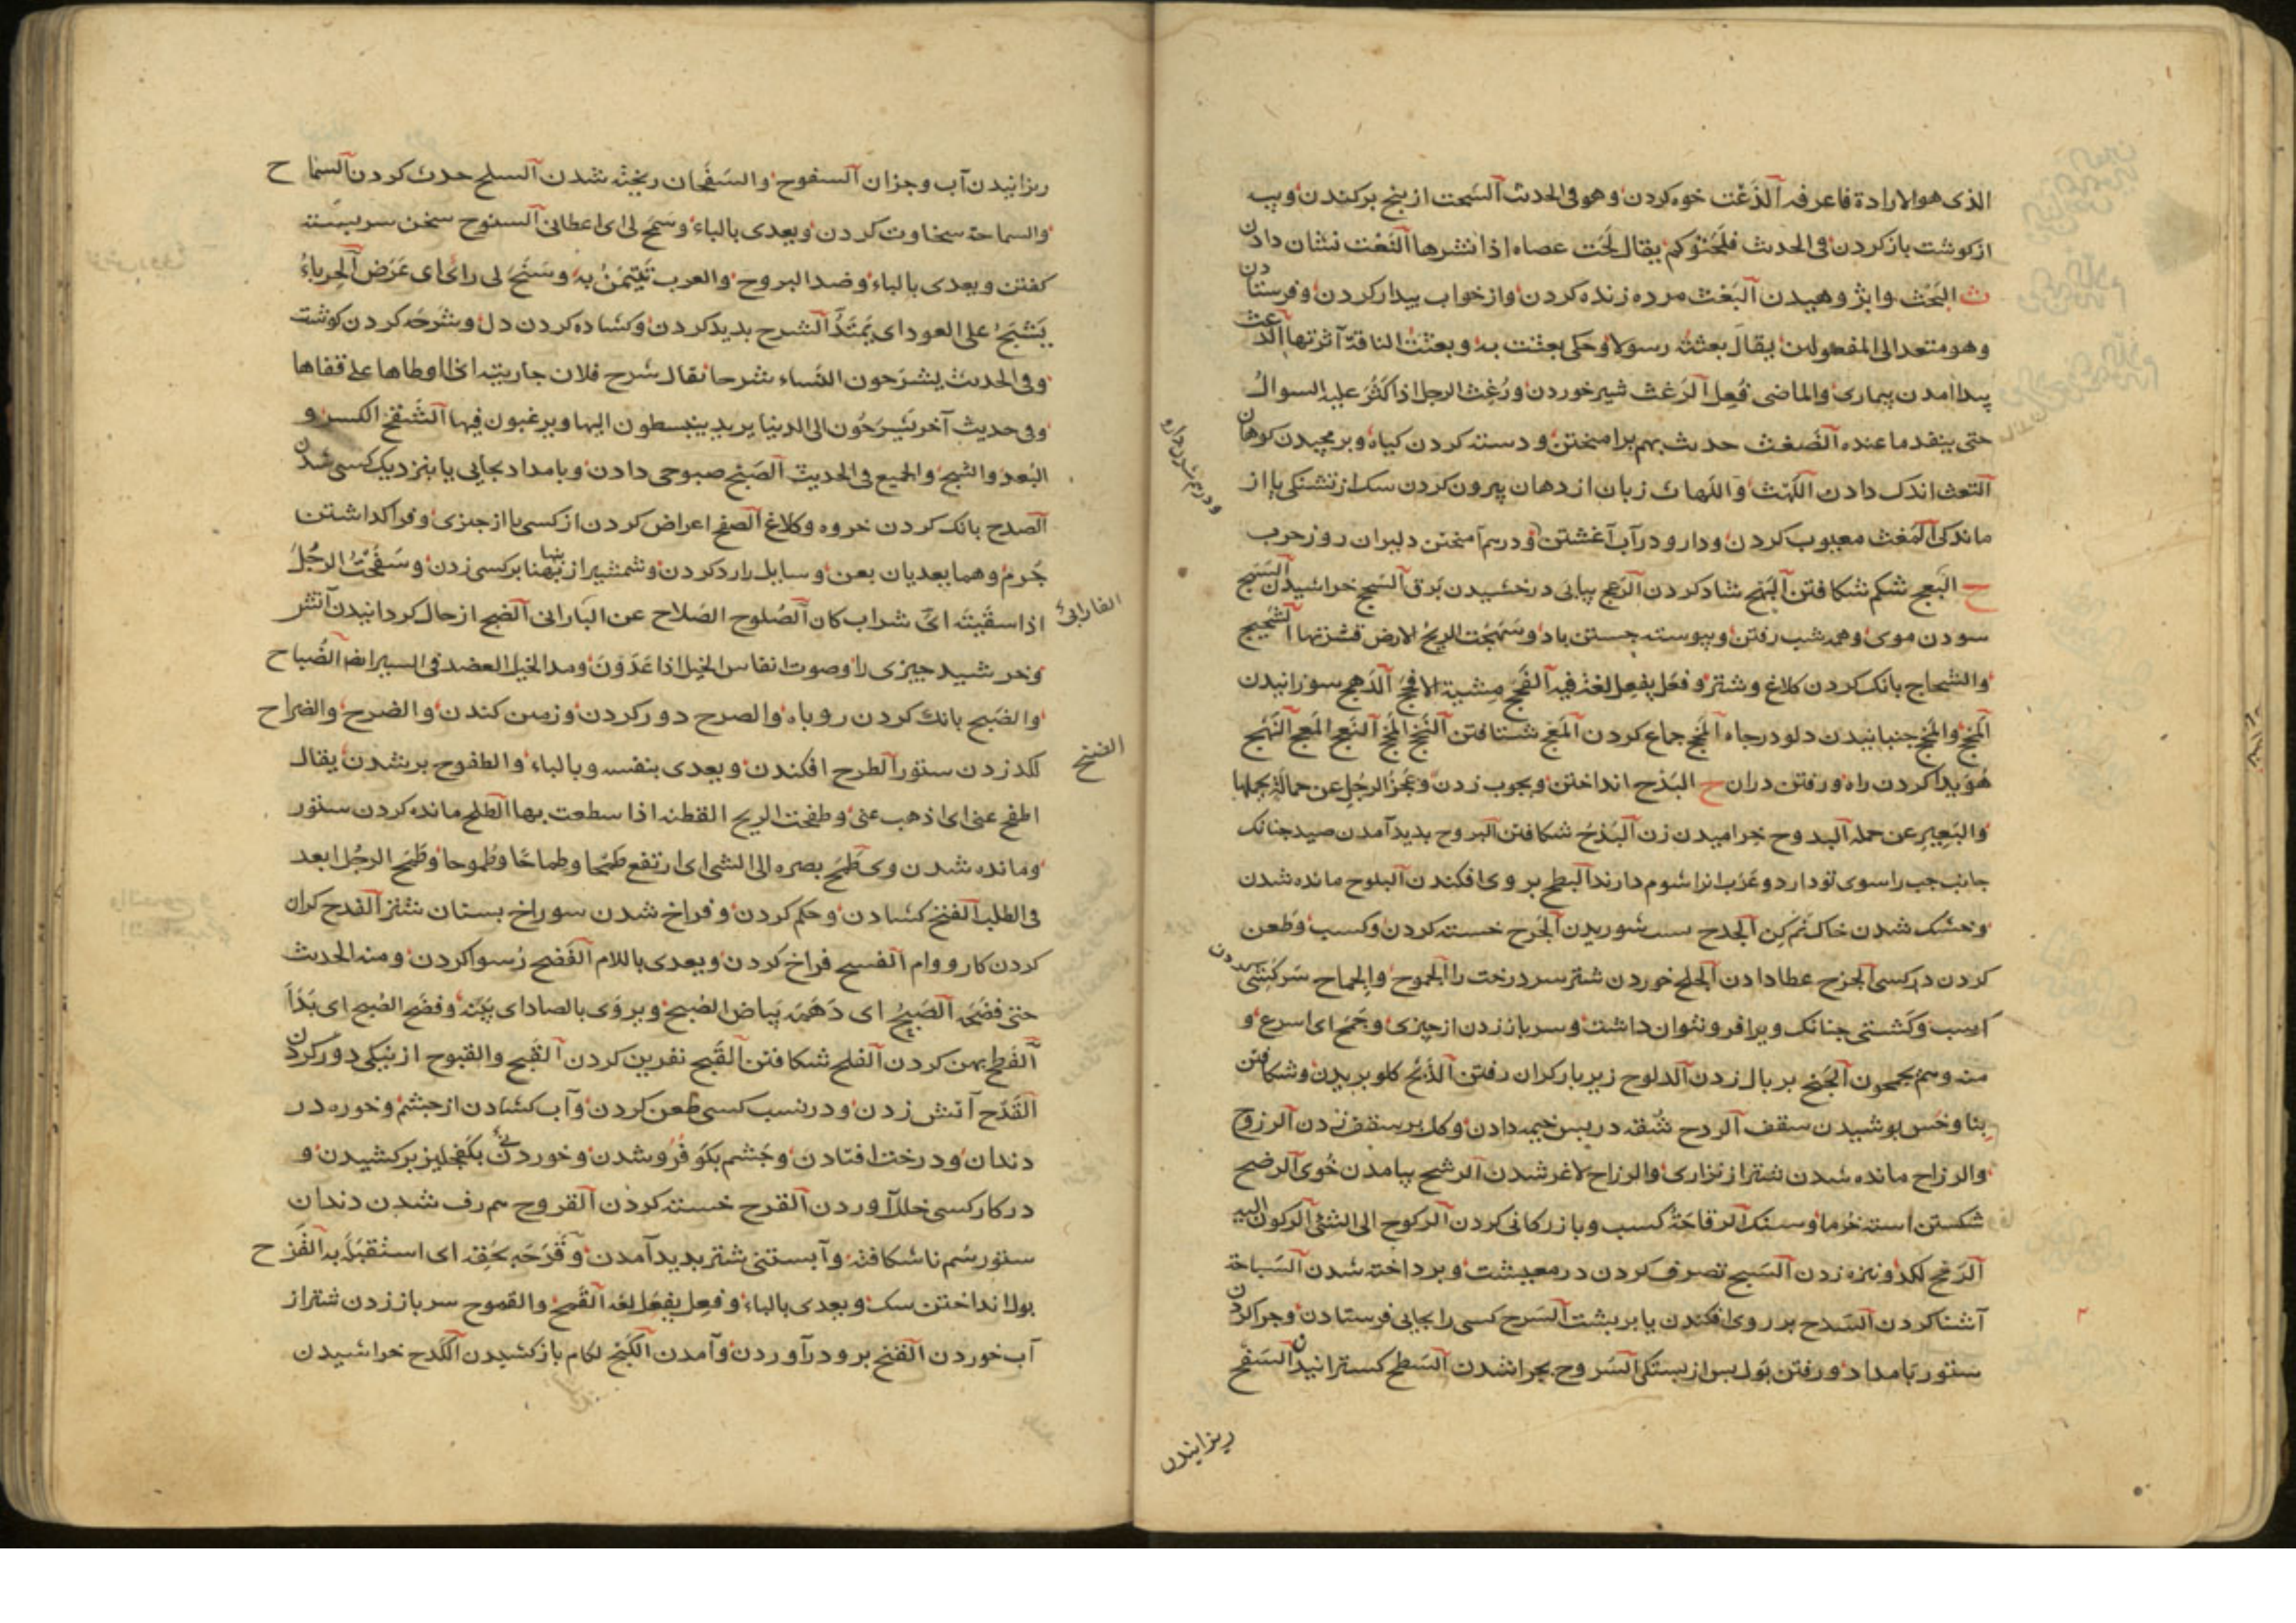 الذی هو الارادة فاعرفه الذَعْت خوه کردن وهو فی الحدیث السَحت از بیخ برکندن وپیه
از کوشت باز کردن فی الحدیث فلَحَتُوکم یقال لَحَت عصاه اذا نشرها النَعْت نشان دادن
ث البَحْث وابژوهیدن البَعْث مرده زنده کردن واز خواب بیدار کردن وفرستادن
وهو متعد الی المفعولین یقال بعثه رسولا وحکی بعثت به وبعثت الناقة آثرتها الدعث
پیدا امدن بیماری والماضی فُعِل الرَغث شیر خوردن ورُغِث الرجل اذا کَثُرَ علیه السوالُ
حتی ینفد ما عنده الضَغث حدیث بهم برامیختن ودسته کردن کیاه وبرمجیدن کوهان
التعث اندک دادن اللَهْث واللُهاث زبان از دهان بیرون کردن سک از تشنکی یا از
ماندکی المَغث معیوب کردن ودارو در آب آغشتن ودرهم آمیختن دلیران روز حرب
ودرهم شدن دارو
ج البَعج شکم شکافتن البَهج شاد کردن الزعج پیاپی درخشیدن برق السَحج خراشیدن السَهج
سودن موی وهمه شب رفتن وپیوسته جستن باد وسَهَجَت الریحُ الارض قشرتها الشحیج
والشحاج بانک کردن کلاغ وشتر وفعَل یفعِل لغة فیه الفَحج مِشیة الافحَج الدَهج سوزانیدن
المَخج والمَخج جنبانیدن دلو در چاه المَخج جماع کردن المَعج شتافتن النَخج المَخج النَعج المَعج النَهج
هُوَیدا کردن راه ورفتن دران ح البَدْح انداختن وبجوب زدن وعَجَز الرجل عن حمالة یحملها
والبَعِیرِ عن حمله البدوح خرامیدن زن البَذحُ شکافتن البروح بدید آمدن صید جنانک
جانب جب را سوی تو دارد وعَرَب انرا شوم دارند البطح بر روی افکندن البلوح مانده شدن
وخشک شدن خاک نم کِن الجدح سـت شوریدن الجَرح خسته کردن وکسب وطعن
کردن در کسی الجزح عطا دادن الجلح خوردن شتر سر درخت را الجموح والجماح سَرکشی کردن
اسب وکَشتی جنانک ویرا فرو نتوان داشت وسر باز زدن از جیزی وجَمَح ای اسرع و
منه وهم یجمحون الجَنح بر بال زدن الدلوح زیر بار کران رفتن الذَبْح کلو بریدن وشکافتن
بنا وخَس بوشیدن سقف الردح شُقه در پس خیمه دادن وکل بر سقف زدن الرزوح
والرزاح مانده شدن شتر از نزاری والرزاح لاغر شدن الرشح بیامدن خُوی الرضح
شکستن استه خُرما وسنک الرقاحَةُ کسب وبازرکانی کردن الرکوح الی الشئ الرکون الیه
الرَمح لکد ونیزه زدن السَبح تصرف کردن در معیشت وبرداخته شدن السَباحة
آشنا کردن السَدح بر روی افکندن یا بر بشت السَرح کسی را بجایی فرستادن وجرا کردن
ستور بامداد ورفتن بَول بس از بستکی السَروح بجرا شدن السَطح کسترانیدن السَفْح
ریزانیدن
ریزانیدن آب وجزان السفوح والسَفَحان ریخته شدن السلح حدث کردن السَمَاح
والسماحة سخاوت کردن ویعدی بالباء وسَمَح لی ای اعطانی السنوح سخن سربسته
کفتن ویعدی بالباء وضد البروح والعرب تَتَیَمَّنُ به وسَنَحَ لی رائ ای عَرَض الحرباءُ
یَشبَحُ علی العود ای یَمتَدُّ الشرح بدید کردن وکشاده کردن دل وشَرحَه کردن کوشت
وفی الحدیث یشرَحون النساء شرحا یقال شرح فلان جاریته اذا اوطاها علی قفاها
وفی حدیث آخر یَشرَحُون الی الدنیا یرید ینبسطون الیها ویرغبون فیها الشَقح الکسر و
البُعد والشبح والجمیع فی الحدیث الصَبح صبوحی دادن وبامداد بجایی یا بنزدیک کسی شدن
الصدح بانک کردن خروه وکلاغ الصفح اعراض کردن از کسی یا از جیزی وفرا کداشتن
جُرم وهما یعدیان بعن وسایل را رد کردن وشمشیر از بهنا بر کسی زدن وسَفَحْتُ الرجُلَ
اذا سقَیتَه ای شراب کان الصُلوح الصَلاح عن الفارابی الضبح از حال کردانیدن آتش
وخرشید جیزی را وصوت انفاس الخیل اذا عَدَونَ ومد الخیل العضد فی السیر ایضا الضُباح
والضَبیح بانک کردن روباه والضرح دور کردن وزمین کندن والضرح والضراح
لکد زدن ستور الطرح افکندن ویعدی بنفسه وبالباء والطفوح بر شدن یقال
اطفح عنی ای اذهب عنی وطفحت الریح القطنة اذا سطعت بها الطلح مانده کردن ستور
ومانده شدن وی طَمَحَ بصره الی الشئ ای ارتفع طَمْحًا وطِماحًا وطُموحا وطَمَح الرجُل ابعد
فی الطلب الفتح کشادن وحکم کردن وفراخ شدن سوراخ بستان شتر الفدح کران
کردن کار ووام الفسح فراخ کردن ویعدی باللام الفَضح رُسوا کردن ومنه الحدیث
حتی فضَحَهُ الصُبحُ ای دَهَمَهُ بَیاض الصُبح ویروَی بالصاد ای بیّنه وفضَح الصُبح ای بَدَا
الفَطح پهن کردن الفلح شکافتن القَبح نفرین کردن القَبح والقبوح از نیکی دور کردن
القَدْح آتش زدن ودر نسب کسی طعن کردن وآب کشادن از جشم وخوره در
دندان ودرخت افتادن وجَشم بکَو فُرو شدن وخوردنی بکَفجلیز برکشیدن و
در کار کسی خلل آوردن القرح خسته کردن القروح هم رف شدن دندان
ستور سُم ناشکافته وآبستنی شتر بدید آمدن وقَرَحَه بحُقِه ای استقبَلَهُ به القَزح
بول انداختن سک ویعدی بالباء وفعِل یفعَل لغة القَمح والقموح سر باز زدن شتر از
آب خوردن القَنح برو در آوردن وآمدن الکَبح لکام باز کشیدن الکَدح خراشیدن